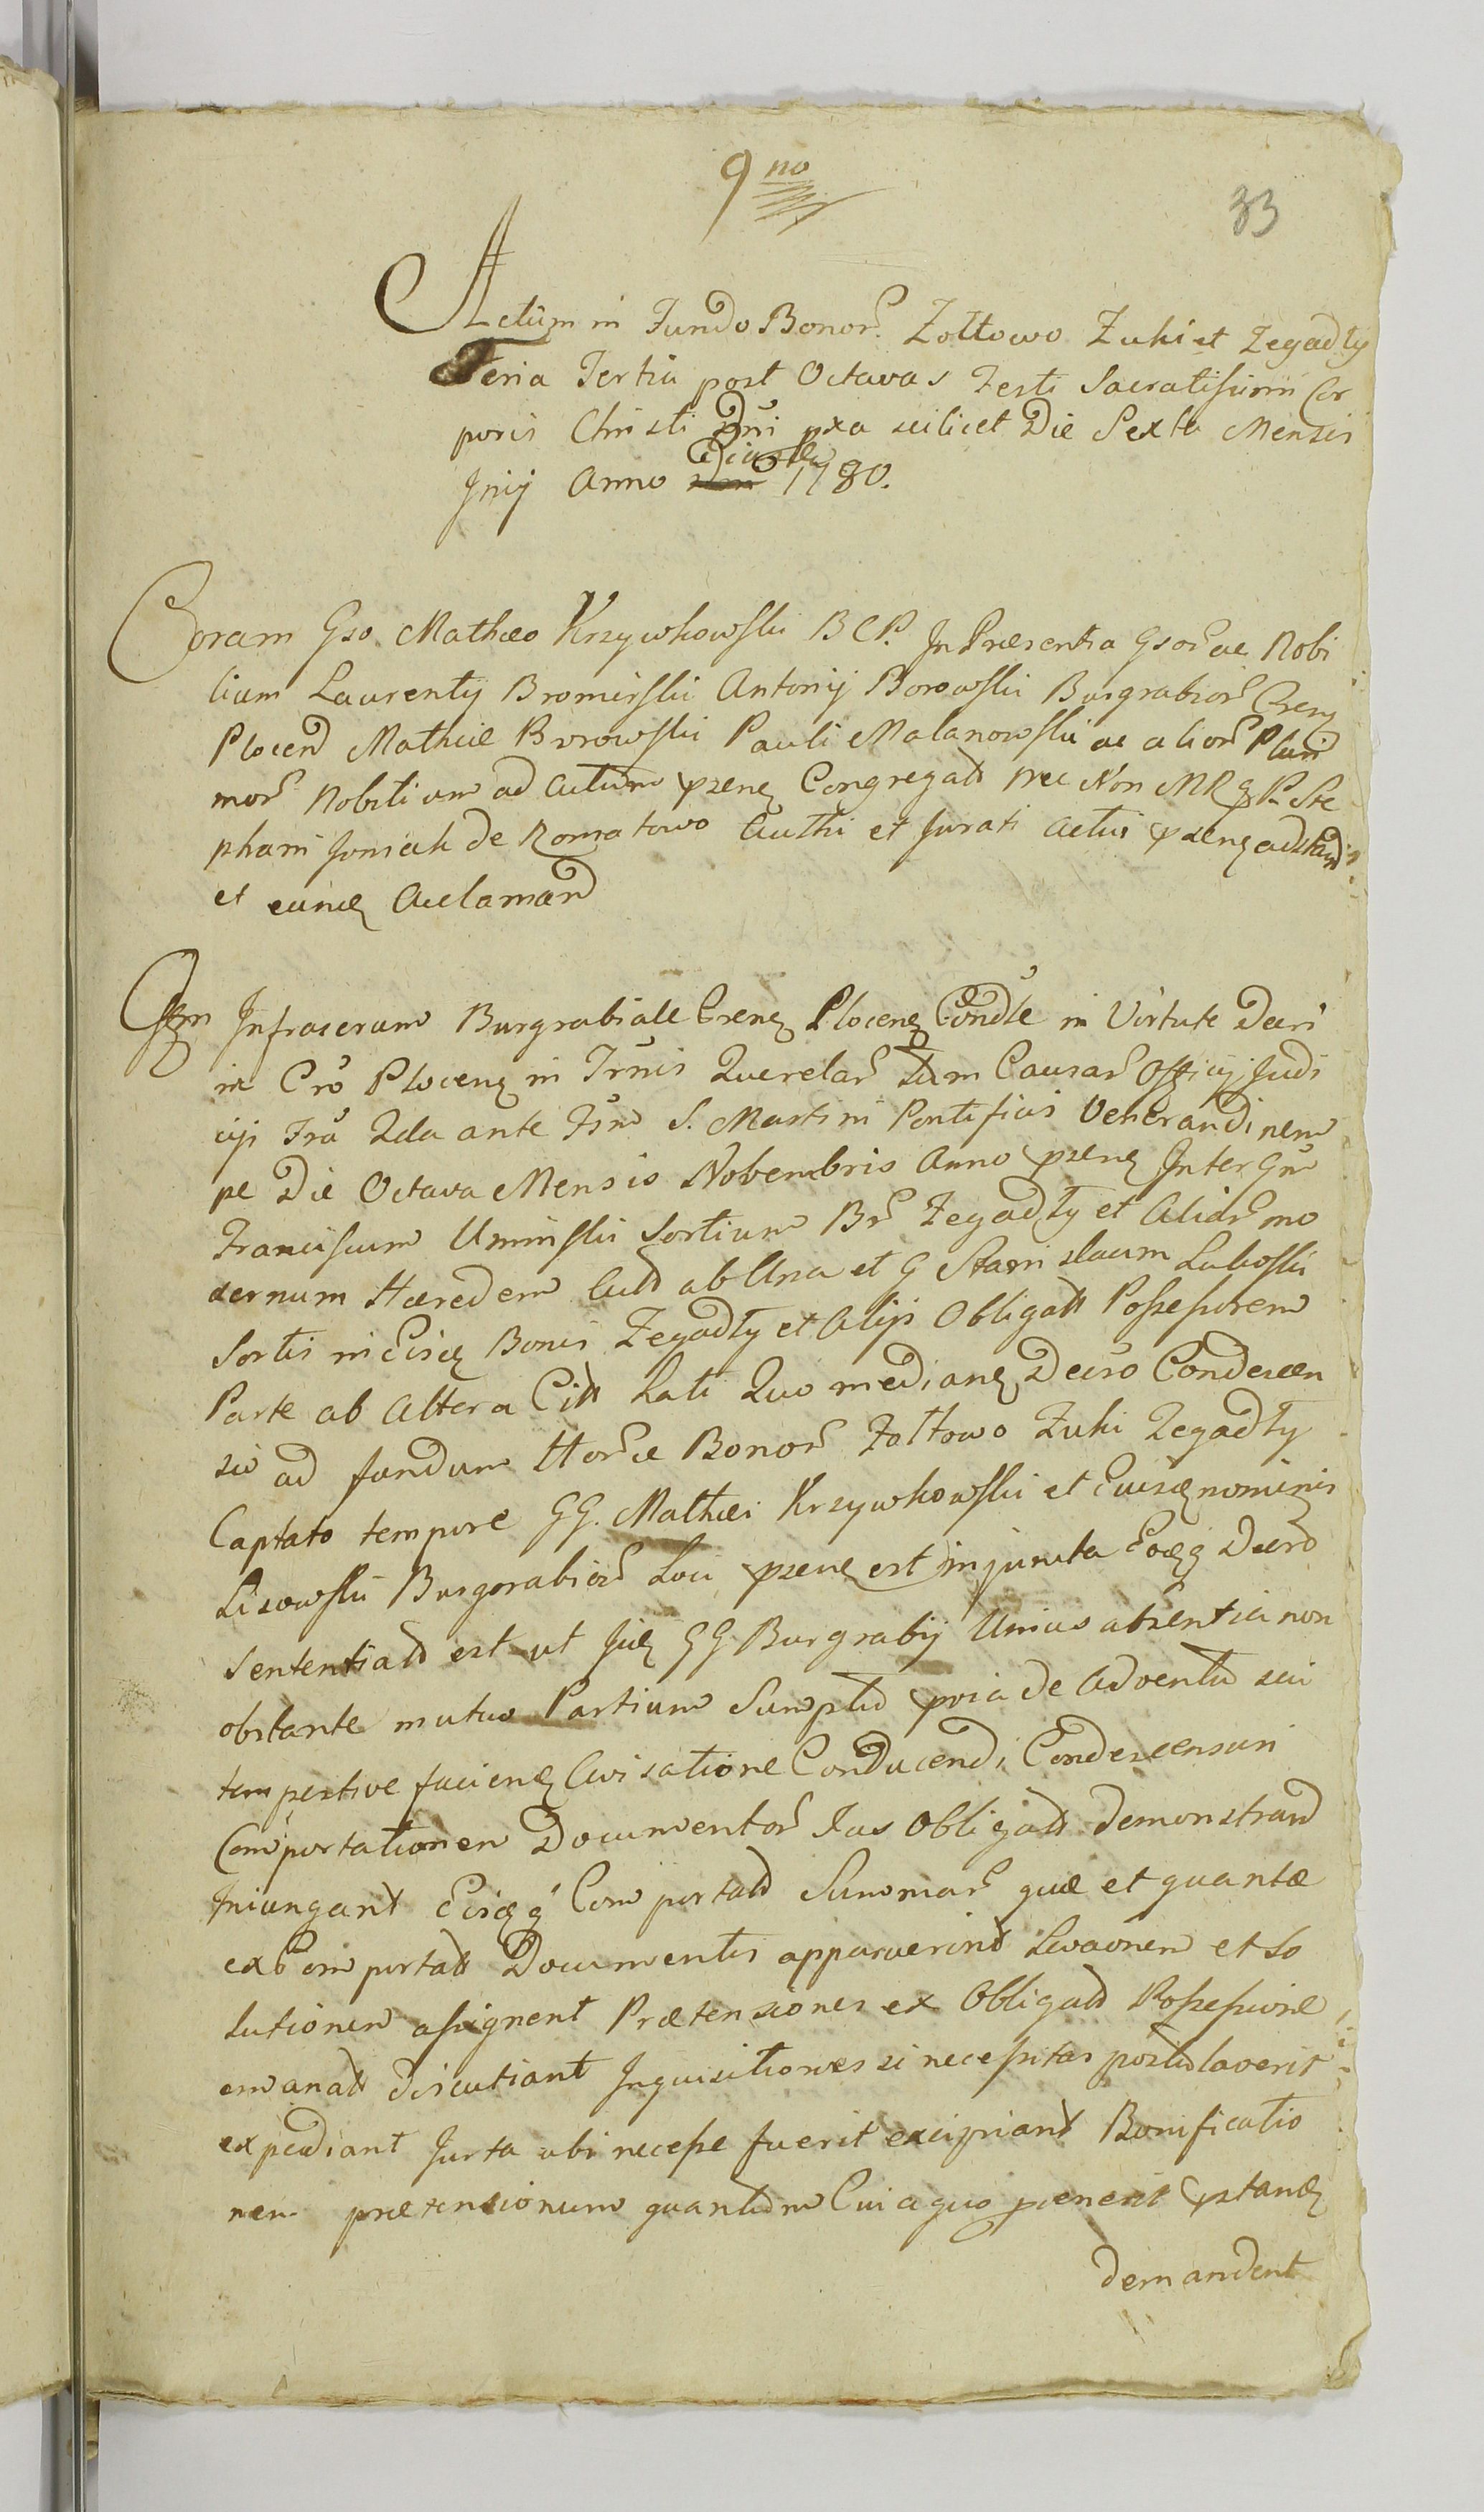 9no
33
Actum in Fundo Bonor. Zołtowo Zuki et Zegadły
Feria Tertia post Octavas Festi Sacratissimi Cor
poris Christi Dni pxa scilicet Die Sexta Mensis
Junij Anno 1780.
Coram Gso Mathæo Krzywkowski B C P. In Præsentia Gsor ac Nobi
lium Laurentij Bromirski Antonij Borowski Burgrabior Cren
Plocen Mathiæ Brrowski Pauli Malanowski ac alior Pluri
mor Nobilium ad Actum psens Congregat nec Non MRgP. Ste
phani Joniak de Romatowo Authi et Jurati Actui psens adstand
et eund Acclamand
Offm Infrascrum Burgrabiale Crense Plocens Condle in Virtute Decri
in Cro Plocens in Trnis Querelar tum Causar Officij Judi
cij Fra 2da ante Fsm S. Martini Pontificis Venerandi nem
pe Die Octava Mensis Novembris Anno psens Inter Gm
Franciscum Uminski Sortium Br Zegadły et Aliar mo
dernum Hæredem Actt ab Una et G Stanislaum Lukoski
Sortis in Eisd Bonis Zegadły et Alijs Obligatt Possessorem
Parte ab Altera Citt Lati Quo median Decro Condescen
sio ad fundum Hor æ Bonor Zołtowo Zuki Zegadły
Captato tempore GG. Mathæi Krzywkowski et Ejusd nominis
Lisowski Burgrabior Loci psens est injuncta Eoq Decro
Sententiatt est ut Jid GG Burgrabij Unius absentia non
obstante mutuo Partium Sumptu pvia de Adventu sui
tempestive faciend Avisatione Conducendi Condescensuri
Comportationem Documentor Jus Obligatt demonstrand
Injungant Eisq Comportatt Summar quæ et quantæ
ex Comportatt Documentis apparuerint Levaonem et So
lutionem assignent Prætensiones ex Obligatt Possessione
emanatt discutiant Inquisitiones si necessitas postulaverit
expediant Jurta ubi necesse fuerit excipiant Bonificatio
nem prætensionum quantum Cui a quo pvenerit pstand
demandent